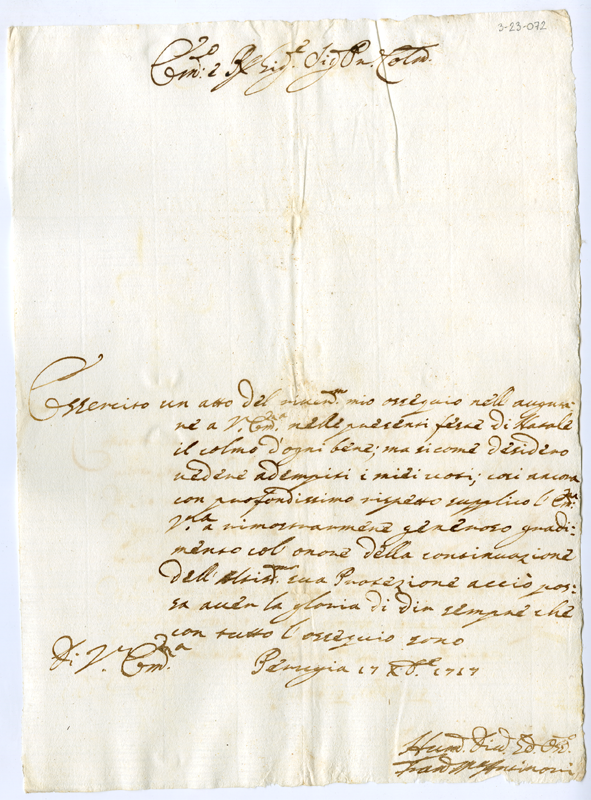 3-23-072
Em:o e R Sig.e Sig Pn. Colm.
Essercito un atto del riverm.o mio ossequio nell'augura:
re a V. Em.za nelle presenti feste di Natale
il colmo d'ogni bene; ma sicome desidero
vedere adempiti i miei voti; cosi ancora
con profondissimo rispetto supplico l'Em.za
V.ra a rimostrarmene generoso gradi:
mento col onore della continuazione
dell'Altis.ma sua Protezione acciò pos:
sa aver la gloria di dir sempre che
con tutto l'ossequio sono
Di V. Em.za
Perugia 17 Xb.e 1717
Hum. Dev. Ed
Fran